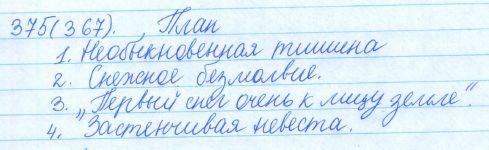 375(367). План
1. Необыкновенная тишина
2. Снежное безмолвие.
3. „Первый снег очень к лицу земле“.
4. Застенчивая невеста.